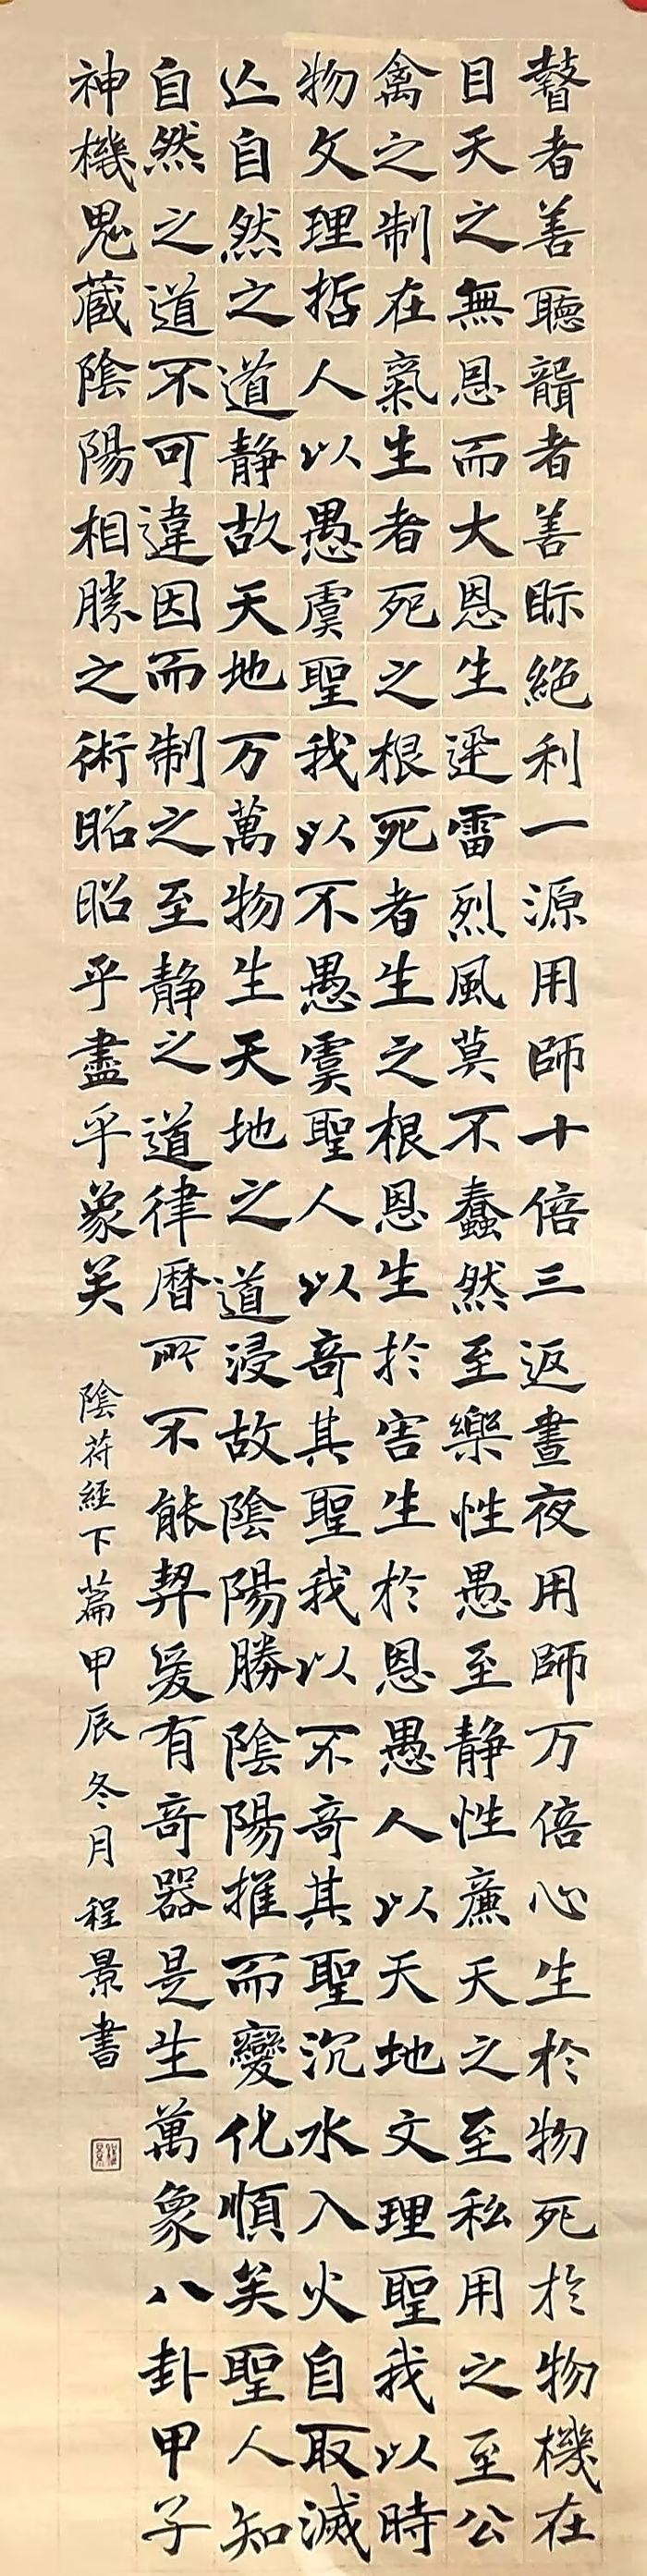 瞽者善聽聾者善眎絕利一源用師十倍三返晝夜用師万倍心生於物死於物機在
目天之無恩而大恩生迅雷烈風莫不蠢然至樂性愚至静性廉天之至私用之至公
禽之制在氣生者死之根死者生之根恩生於害生於恩愚人以天地文理聖我以時
物文理哲人以愚虞聖我以不愚虞聖人以奇其聖我以不奇其聖沉水入火自取滅
亾自然之道静故天地万萬物生天地之道浸故陰陽勝陰陽推而變化順矣聖人知
自然之道不可違因而制之至静之道律曆所不能契爰有奇器是生萬象八卦甲子
神機鬼藏陰陽相勝之術昭昭乎盡乎象矣
陰苻經下篇甲辰冬月程景書